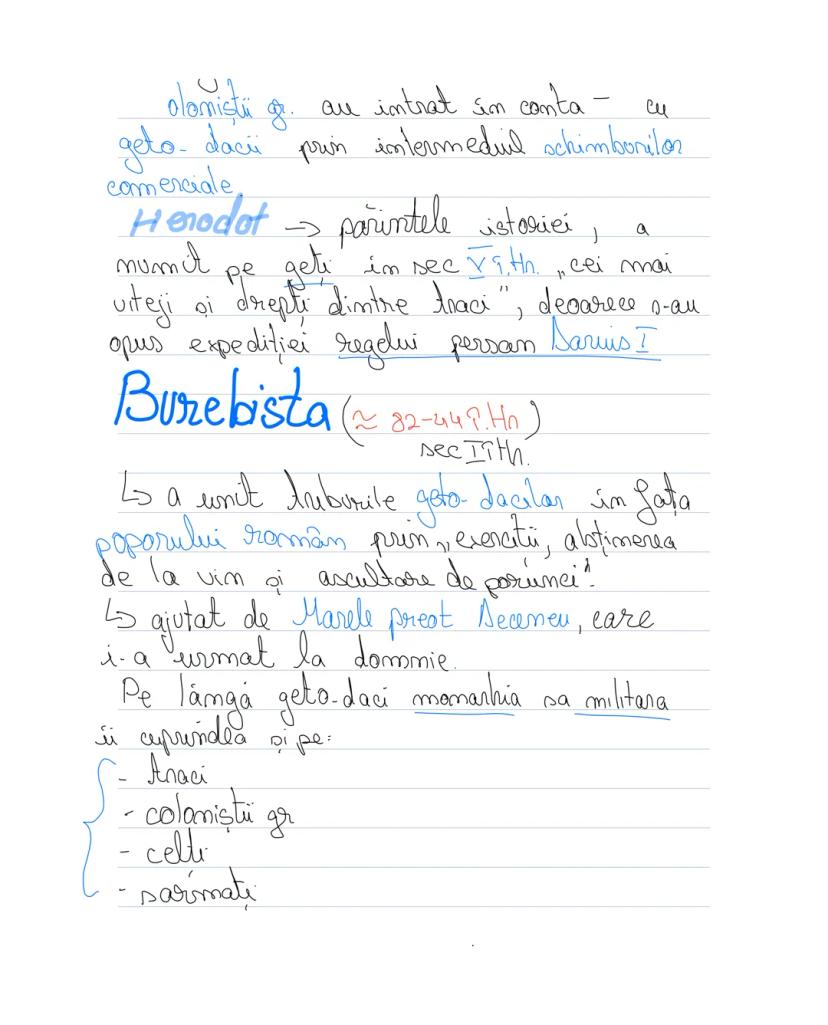 oloniștii gr. au intrat în conta – cu
geto-dacii prin intermediul schimburilor
comerciale
Herodot → părintele istoriei, a
numit pe geți în sec V î.Hr. „cei mai
viteji și drepți dintre traci”, deoarece s-au
opus expediției regelui persan Darius I
Burebista (≈ 82-44 î.Hr)
sec I îHr.
↳ a unit triburile geto-dacilor în fața
poporului român prin „exerciții, abținerea
de la vin și ascultare de porunci”.
↳ ajutat de Marele preot Deceneu, care
i-a urmat la domnie.
Pe lângă geto-daci monarhia sa militara
îi cuprindea și pe:
- traci
- coloniștii gr
- celti
- sarmați